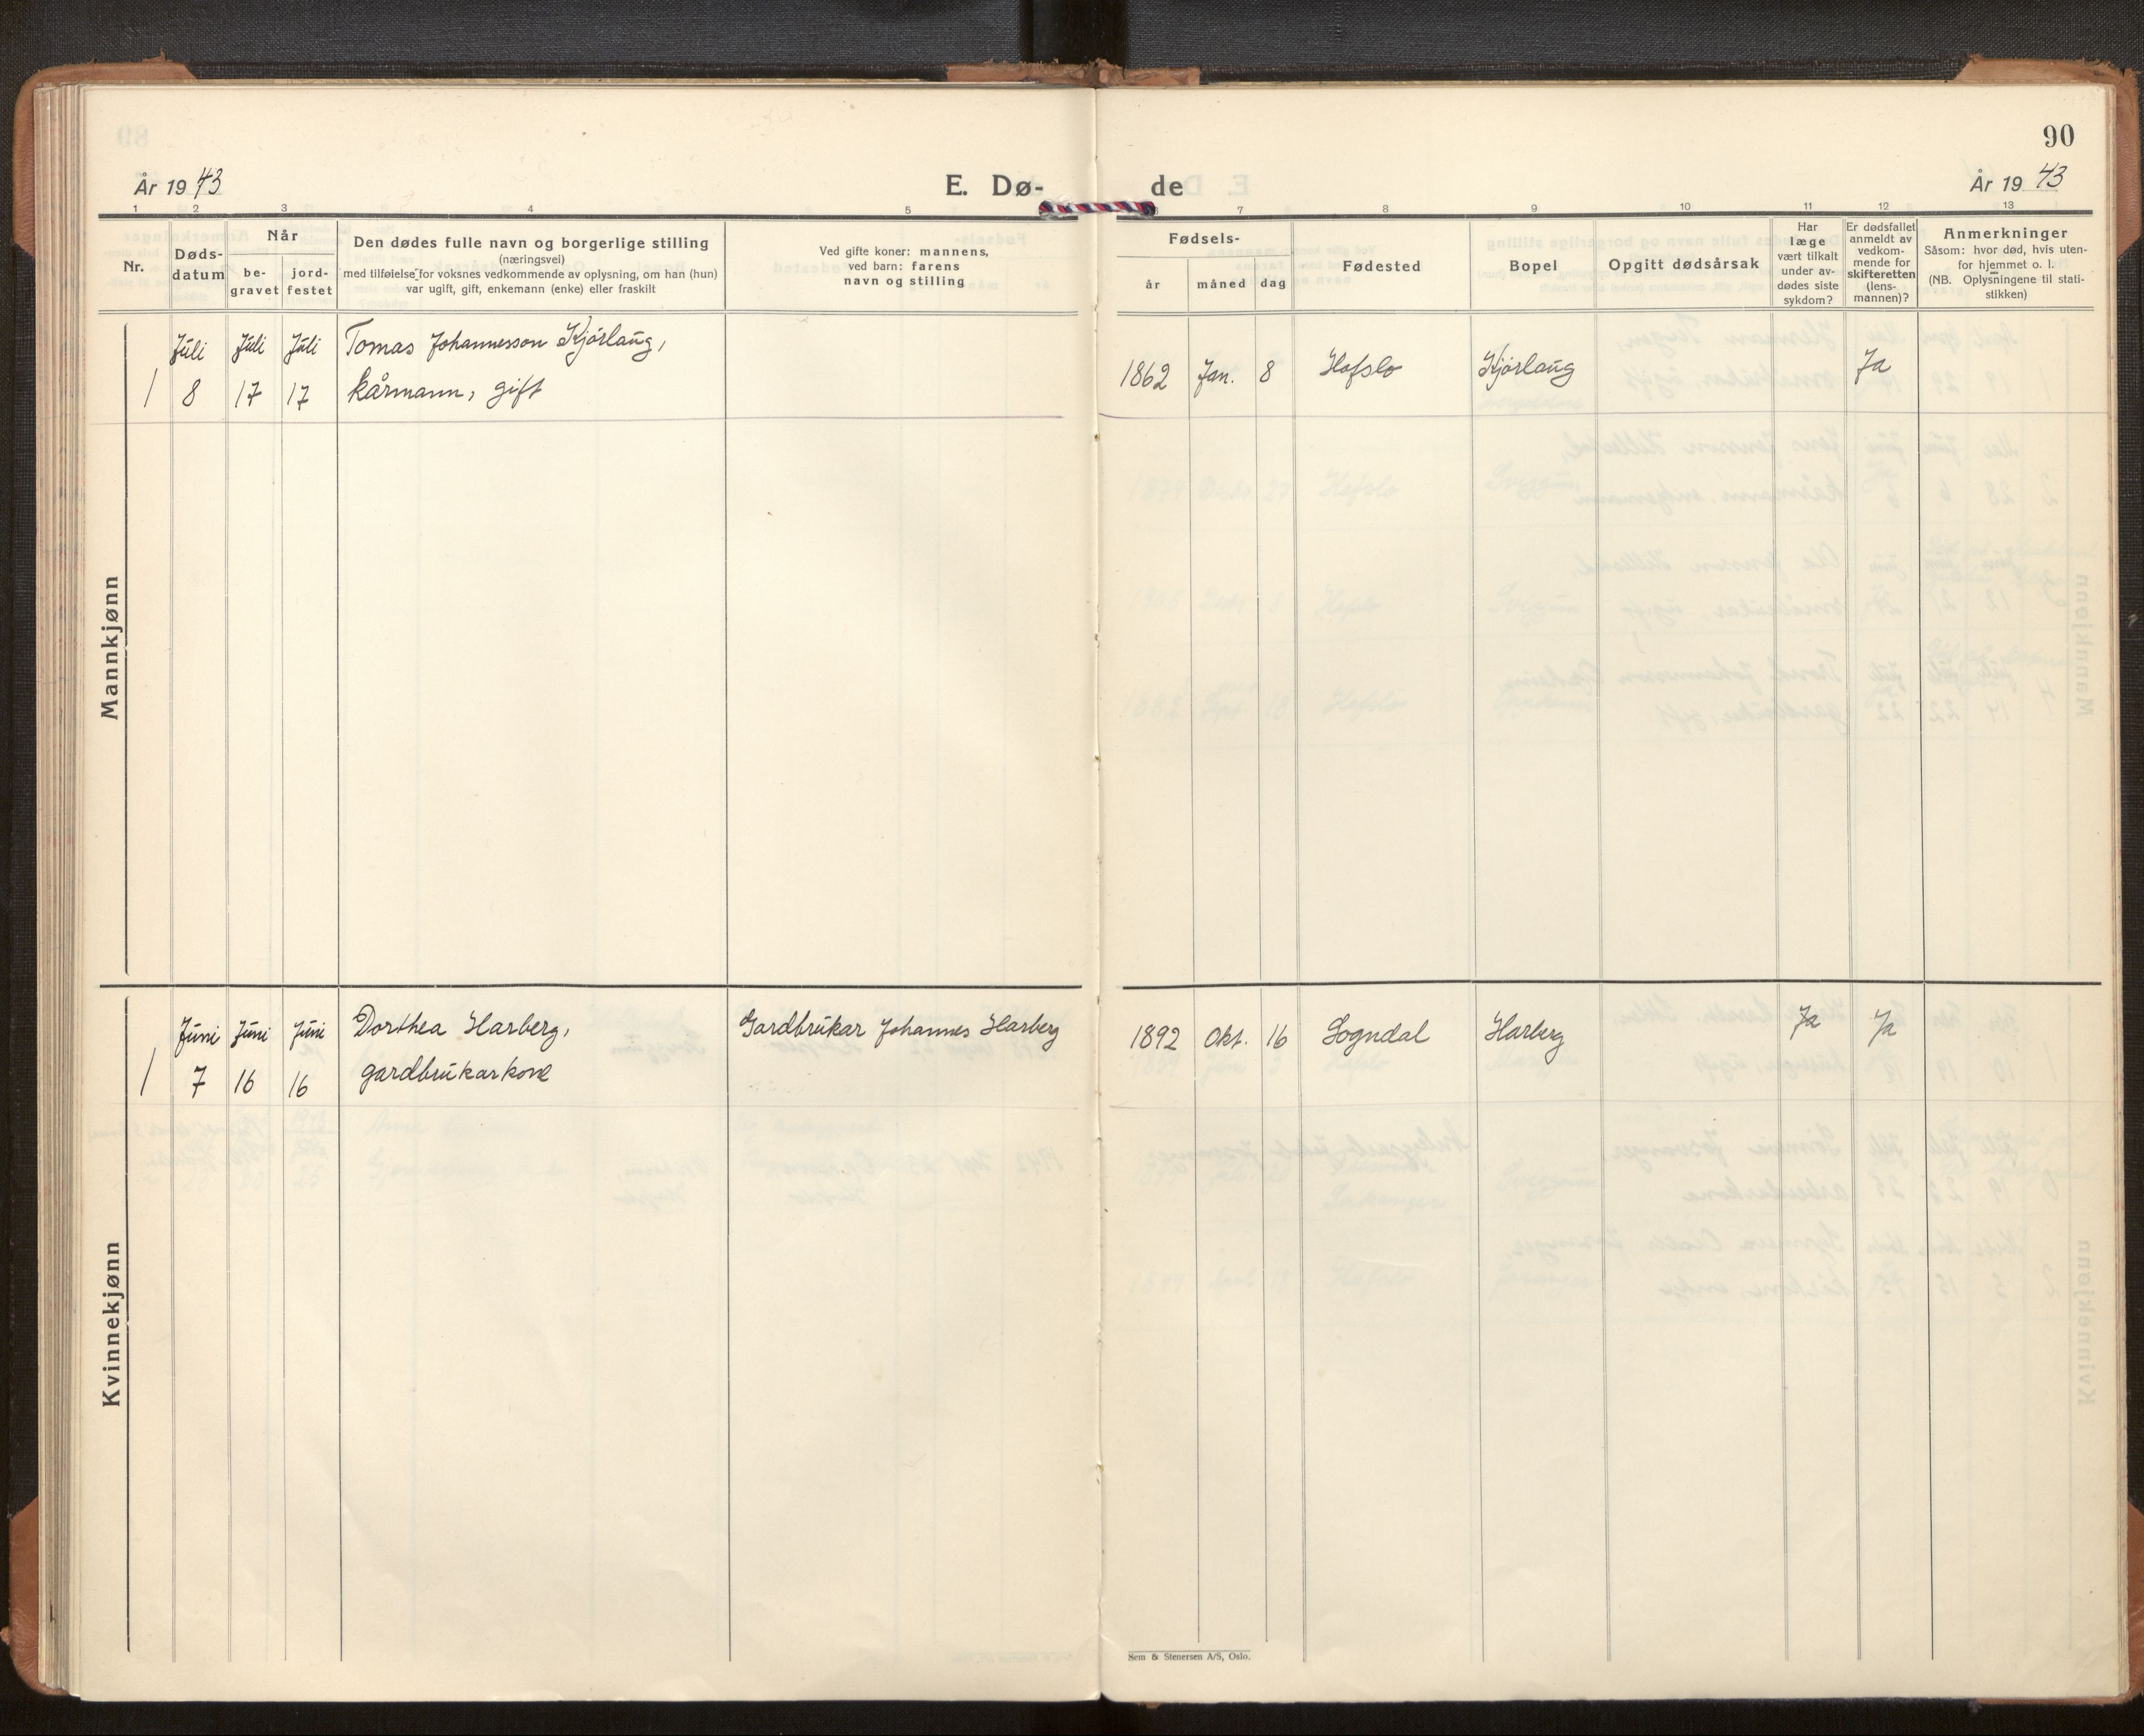 90
År 19 43
E. Dø-
de
År 19 43
1 2 3 4 5 6 7 8 9 10 11 12 13
Nr.
Døds-
datum
Når
be-
gravet
jord-
festet
Den dødes fulle navn og borgerlige stilling
(næringsvei)
med tilføielse for voksnes vedkommende av oplysning, om han (hun)
var ugift, gift, enkemann (enke) eller fraskilt
Ved gifte koner: mannens,
ved barn: farens
navn og stilling
Fødsels-
år måned dag
Fødested
Bopel
Opgitt dødsårsak
Har
læge
vært tilkalt
under av-
dødes siste
sykdom?
Er dødsfallet
anmeldt av
vedkom-
mende for
skifteretten
(lens-
mannen)?
Anmerkninger
Såsom: hvor død, hvis uten-
for hjemmet o. l.
(NB. Oplysningene til stati-
stikken)
Mannkjønn
Juli Juli Juli Tomas Johannesson Kjørlaug,
1 8 17 17 kårmann, gift
1862 Jan. 8 Hafslo Kjørlaug Ja
Kvinnekjønn
Juni Juni Juni Dorthea Harberg, Gardbrukar Johannes Harberg
1 7 16 16 gardbrukarkone
1892 Okt. 16 Sogndal Harberg Ja Ja
Sem & Stenersen A/S, Oslo.